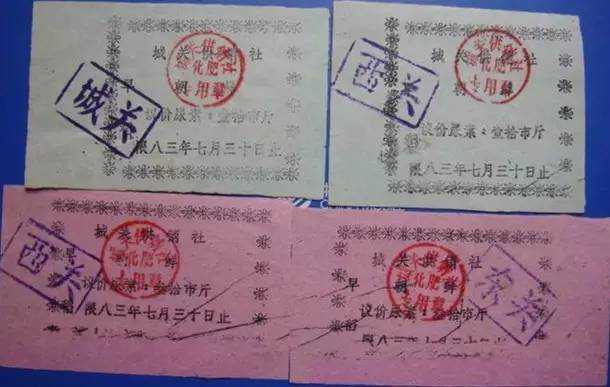 城关供销社
供销社
化肥
专用章
早
城关
议价尿素：壹拾市斤
限八三年七月三十日止
城关供销社
供销社
化肥
专用章
西关
议价尿素：壹拾市斤
限八三年七月三十日止
城关供销社
化肥
专用章
早
西关
议价尿素：壹拾市斤
稻
限八三年七月三十日止
城关供销社
化肥
专用章
早
东关
议价尿素：壹拾市斤
稻